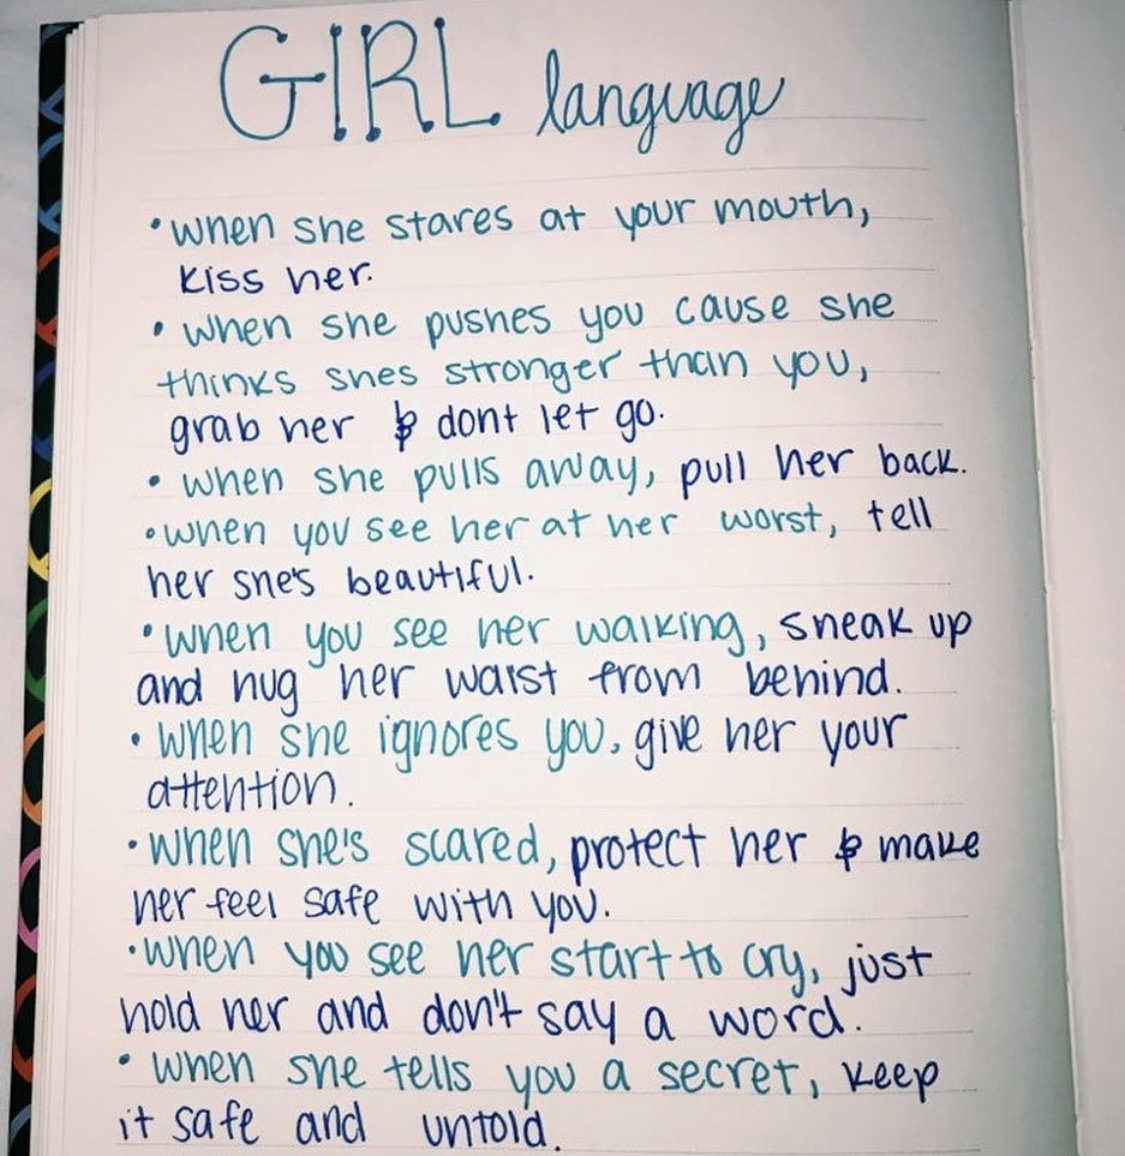 GIRL language
•when she stares at your mouth,
kiss her.
• when she pushes you cause she
thinks shes stronger than you,
grab her & dont let go.
• when she pulls away, pull her back.
•when you see her at her worst, tell
her she's beautiful.
•when you see her walking, sneak up
and hug her waist from behind.
• when she ignores you, give her your
attention.
•when she's scared, protect her & make
her feel safe with you.
•when you see her start to cry, just
hold her and don't say a word.
• when she tells you a secret, keep
it safe and untold.